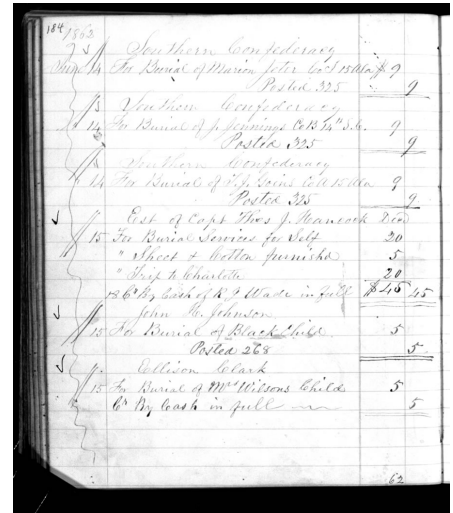 184 1862
Southern Confederacy
June 14 For Burial of Marion Jeter Co 15 Ala $ 9
Posted 325 9
Southern Confederacy
14 For Burial of J. Jennings Co B 14th S.C. 9
Posted 325 9
Southern Confederacy
14 For Burial of Goins Co A 15 Ala 9
Posted 325 9
Est of Capt Thos J. Hancock Decd
15 For Burial Services for Self 20
" Sheet & Cotton furnishd 5
" Trip to Charlotte 20
Cr By Cash of R J Wade in full $45 45
John H. Johnson
15 For Burial of Black Child 5
Posted 268 5
Ellison Clark
15 For Burial of Mrs Wilsons Child 5
Cr By Cash in full 5
62